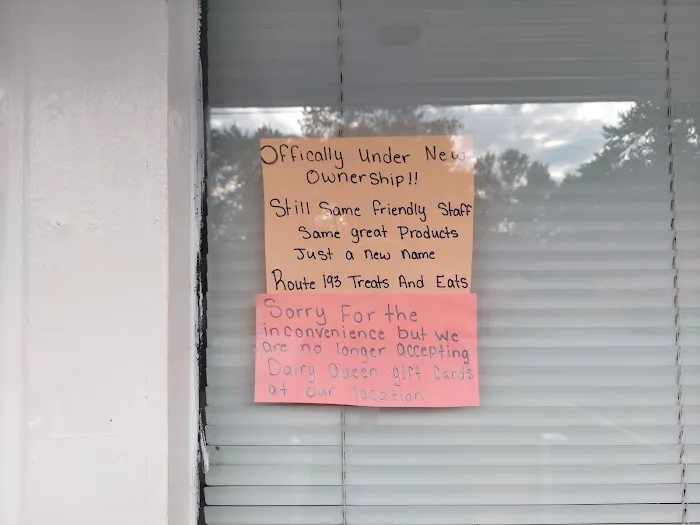 Offically Under New
Ownership!!
Still Same friendly Staff
Same great Products
Just a new name
Route 193 Treats And Eats
Sorry For the
inconvenience but we
are no longer accepting
Dairy Queen gift Cards
at our location